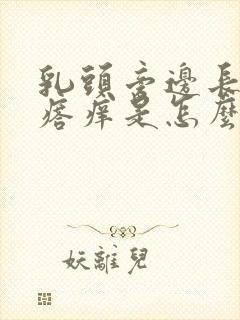 乳頭旁邊長
痞癢是怎麼
妖離兒